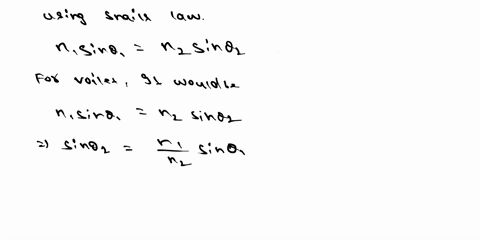 using snails law.
n₁sinθ₁ = n₂sinθ₂
For voilet, It would be
n₁sinθ₁ = n₂ sinθ₂
⇒ sinθ₂ = n₁/n₂ sinθ₁